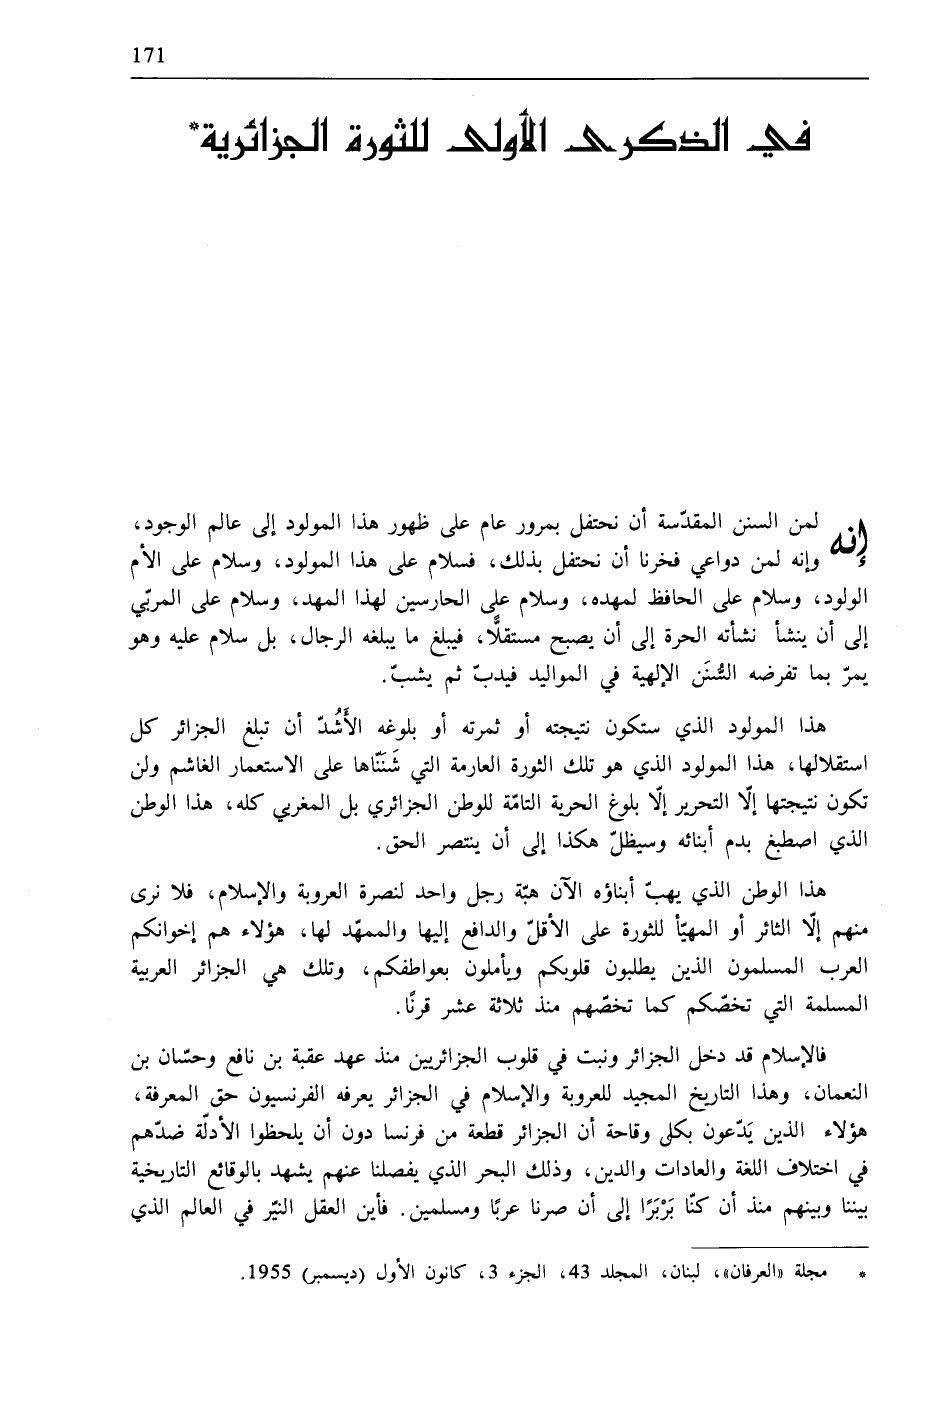 171
في الذكرى الأولى للثورة الجزائرية*
إنه لمن السنن المقدّسة أن نحتفل بمرور عام على ظهور هذا المولود إلى عالم الوجود،
وإنه لمن دواعي فخرنا أن نحتفل بذلك، فسلام على هذا المولود، وسلام على الأم
الولود، وسلام على الحافظ لمهده، وسلام على الحارسين لهذا المهد، وسلام على المربّي
إلى أن ينشأ نشأته الحرة إلى أن يصبح مستقلًّا، فيبلغ ما يبلغه الرجال، بل سلام عليه وهو
يمرّ بما تفرضه السُّنَن الإلهية في المواليد فيدبّ ثم يشبّ.
هذا المولود الذي ستكون نتيجته أو ثمرته أو بلوغه الأَشُدّ أن تبلغ الجزائر كل
استقلالها، هذا المولود الذي هو تلك الثورة العارمة التي شَنَنَّاها على الاستعمار الغاشم ولن
تكون نتيجتها إلّا التحرير إلّا بلوغ الحرية التامّة للوطن الجزائري بل المغربي كله، هذا الوطن
الذي اصطبغ بدم أبنائه وسيظلّ هكذا إلى أن ينتصر الحق.
هذا الوطن الذي يهبّ أبناؤه الآن هبّة رجل واحد لنصرة العروبة والإسلام، فلا نرى
منهم إلّا الثائر أو المهيّأ للثورة على الأقلّ والدافع إليها والممهّد لها، هؤلاء هم إخوانكم
العرب المسلمون الذين يطلبون قلوبكم ويأملون بعواطفكم، وتلك هي الجزائر العربية
المسلمة التي تخصّكم كما تخصّهم منذ ثلاثة عشر قرنًا.
فالإسلام قد دخل الجزائر ونبت في قلوب الجزائريين منذ عهد عقبة بن نافع وحسّان بن
النعمان، وهذا التاريخ المجيد للعروبة والإسلام في الجزائر يعرفه الفرنسيون حق المعرفة،
هؤلاء الذين يَدّعون بكل وقاحة أن الجزائر قطعة من فرنسا دون أن يلحظوا الأدلّة ضدّهم
في اختلاف اللغة والعادات والدين، وذلك البحر الذي يفصلنا عنهم يشهد بالوقائع التاريخية
بيننا وبينهم منذ أن كنّا بَرْبَرًا إلى أن صرنا عربًا ومسلمين. فأين العقل النيّر في العالم الذي
* مجلة «العرفان»، لبنان، المجلد 43، الجزء 3، كانون الأول (ديسمبر) 1955.